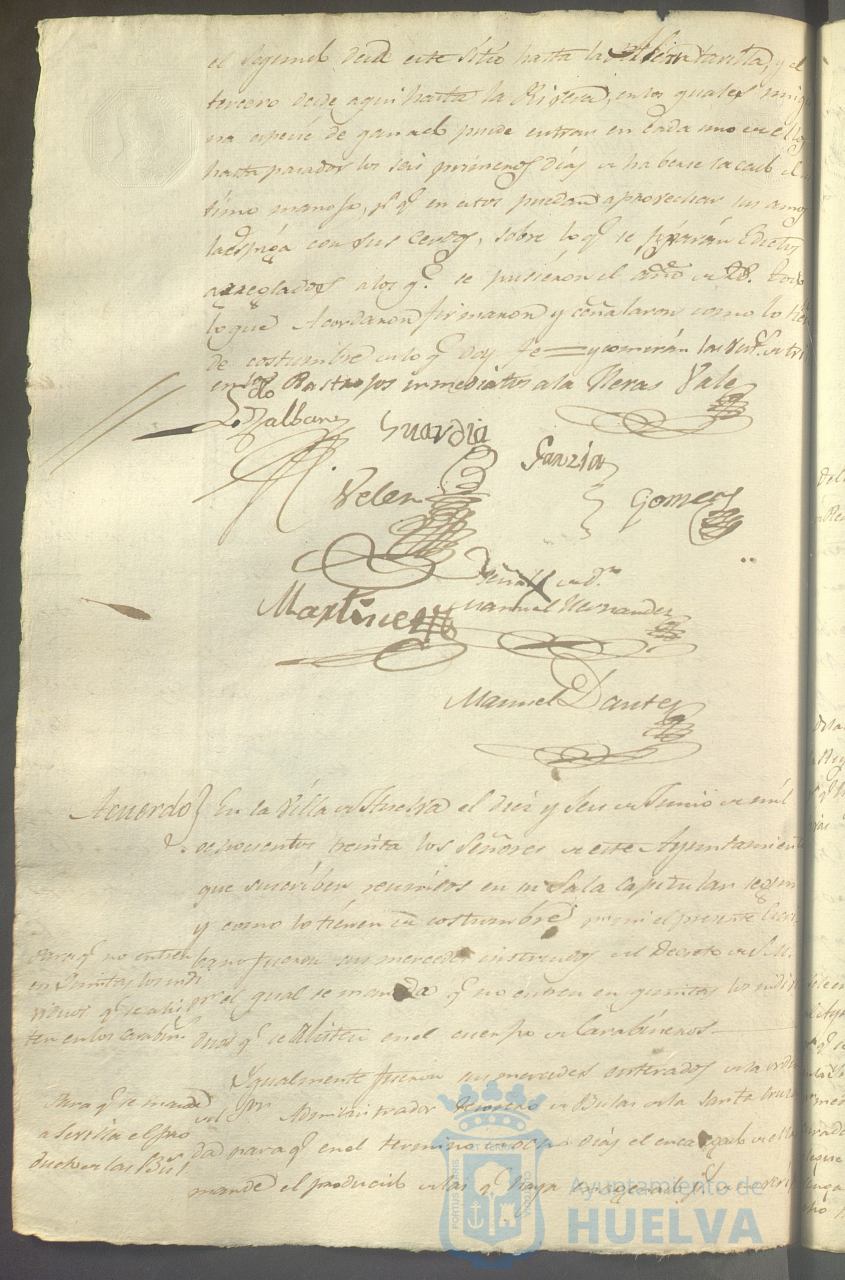 el segundo desde este sitio hasta la y el
tercero desde aqui hasta la Rivera, en los quales ning
na especie de ganado puede entrar en cada uno de ellos
hasta pasados los seis primeros dias de haberse sacado el ul
timo manojo, pª qº en estos puedan aprovechar sus amos
la espiga con sus cerdos, sobre lo qº se fixarán Edictos
arreglados a los qº se pusieron el año de 28. todo
lo que Acordaron firmaron y señalaron como lo tien
de costumbre de lo qº doy fe = y comerán las
en los Rastrojos inmediatos a la Heras Vale
Guardia
Garzia
Velez
Gomez
Señal de Dn
Manuel Hernandez
Martinez
Manuel Dante
Acuerdo} En la Villa de Huelva el diez y seis de Junio de mil
ochocientos treinta los Señores de este Ayuntamiento
que suscriben reunidos en su Sala Capitular segun
y como lo tienen de costumbre por mi el presente Escri
bano fueron sus mercedes instruidos del Decreto de S.M.
por el qual se manda qº no entren en quintas los indivi
duos qº se alisten en el cuerpo de Carabineros
Para qº no entren
en Quintas los indi
viduos qº se alis
ten en los Carabins
Igualmente fueron sus mercedes enterados de la orden
del Sor Administrador Tesorero de Bulas de la Santa Cruza
da para qº en el termino de ocho dias el encargado de ellas
mande el producido de las qº haya
Para qº se mande
a Sevilla el pro
ducto de las Buls
Ayuntamiento de
HUELVA